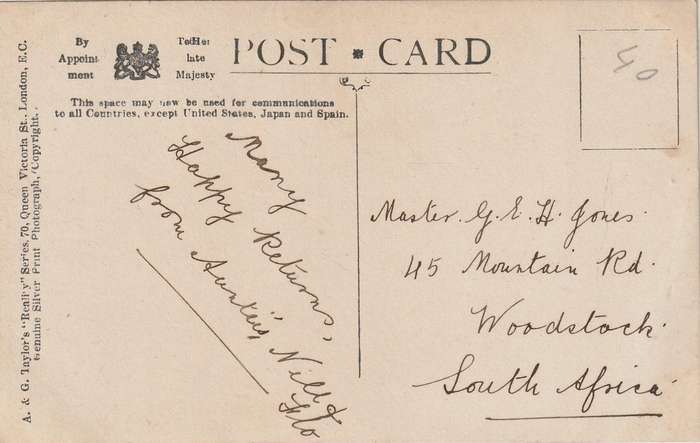 By
Appoint
ment
To Her
late
Majesty
POST CARD
This space may now be used for communications
to all Countries, except United States, Japan and Spain.
40
Many
Happy Returns,
from Aunties, Nill &
Flo
Master. G. E. H. Jones.
45 Mountain Rd.
Woodstock.
South Africa
A. & G. Taylor's "Reality" Series, 70, Queen Victoria St., London, E.C.
Genuine Silver Print Photograph, Copyright.